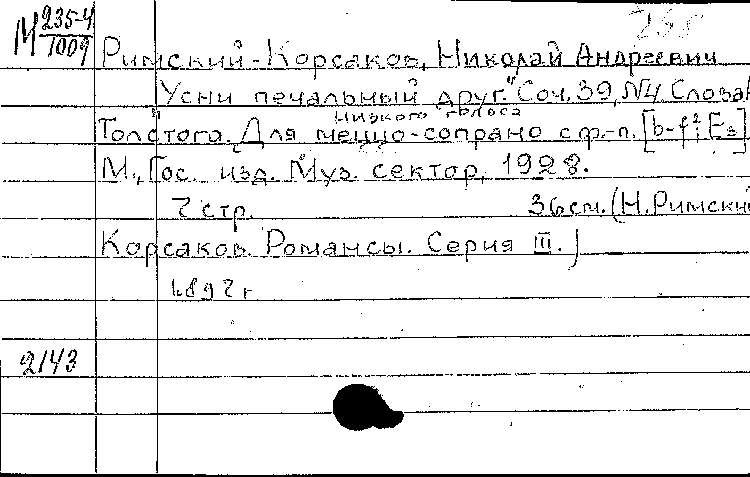 М 235-4
1009
258
Римский-Корсаков, Николай Андреевич
"Усни печальный друг." Соч. 39, №4. Слова
низкого голоса
Толстого. Для меццо-сопрано с ф.-п. [b-f²; Es]
М., Гос. изд. Муз. сектор, 1928.
7 стр. 36 см. (Н. Римский
Корсаков. Романсы. Серия III.)
1897 г
2143